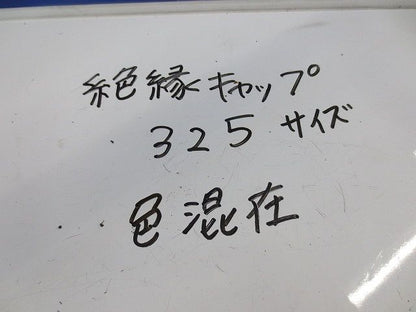 絶縁キャップ
325 サイズ
色混在